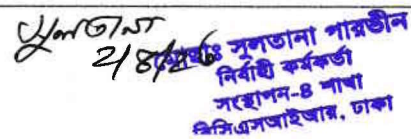 সুলতানা
সুলতানা পারভীন
নির্বাহী কর্মকর্তা
সংস্থাপন-৪ শাখা
বিসিএসআইআর, ঢাকা